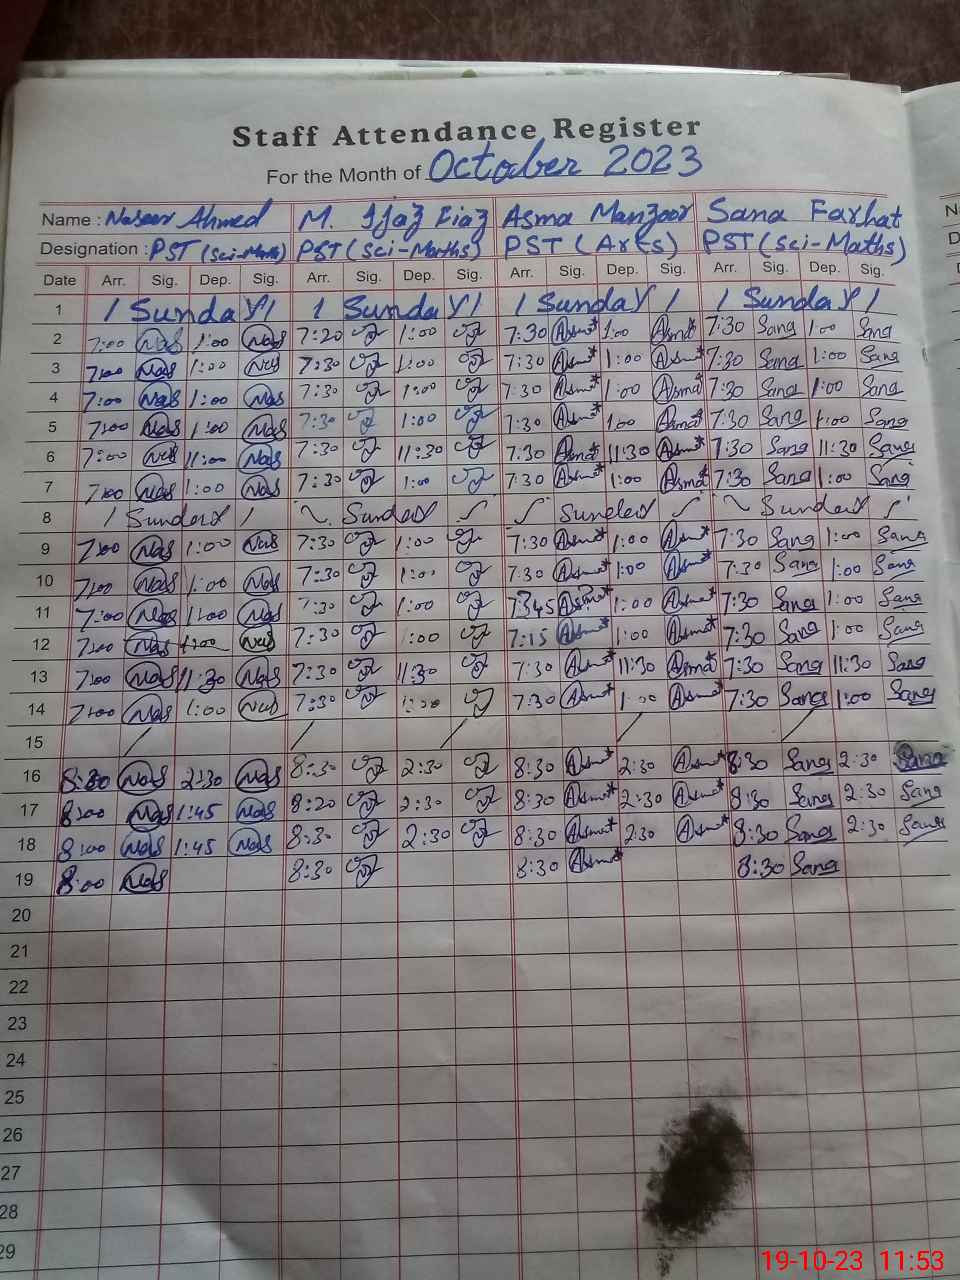 Staff Attendance Register
For the Month of October 2023
Name : Naseer Ahmed M. Ijaz Fiaz Asma Manzoor Sana Farhat
Designation : PST (Sci-Maths) PST (Sci-Maths) PST (Arts) PST (Sci-Maths)
Date Arr. Sig. Dep. Sig. Arr. Sig. Dep. Sig. Arr. Sig. Dep. Sig. Arr. Sig. Dep. Sig.
1 Sunday Sunday Sunday Sunday
2 7:00 Nas 1:00 Nas 7:20 1:00 7:30 Asma 1:00 Asma 7:30 Sana 1:00 Sana
3 7:00 Nas 1:00 Nas 7:30 1:00 7:30 Asma 1:00 Asma 7:30 Sana 1:00 Sana
4 7:00 Nas 1:00 Nas 7:30 1:00 7:30 Asma 1:00 Asma 7:30 Sana 1:00 Sana
5 7:00 Nas 1:00 Nas 7:30 1:00 7:30 Asma 1:00 Asma 7:30 Sana 1:00 Sana
6 7:00 Nas 11:00 Nas 7:30 11:30 7:30 Asma 11:30 Asma 7:30 Sana 11:30 Sana
7 7:00 Nas 1:00 Nas 7:30 1:00 7:30 Asma 1:00 Asma 7:30 Sana 1:00 Sana
8 Sunday Sunday Sunday Sunday
9 7:00 Nas 1:00 Nas 7:30 1:00 7:30 Asma 1:00 Asma 7:30 Sana 1:00 Sana
10 7:00 Nas 1:00 Nas 7:30 1:00 7:30 Asma 1:00 Asma 7:30 Sana 1:00 Sana
11 7:00 Nas 1:00 Nas 7:30 1:00 Asma 1:00 Asma 7:30 Sana 1:00 Sana
12 7:00 Nas 1:00 Nas 7:30 1:00 7:15 Asma 1:00 Asma 7:30 Sana 1:00 Sana
13 7:00 Nas 11:30 Nas 7:30 11:30 7:30 Asma 11:30 Asma 7:30 Sana 11:30 Sana
14 7:00 Nas 1:00 Nas 7:30 1:00 7:30 Asma 1:00 Asma 7:30 Sana 1:00 Sana
15
16 Nas 2:30 Nas 8:30 2:30 8:30 Asma 2:30 Asma 8:30 Sana 2:30 Sana
17 8:00 Nas 1:45 Nas 8:20 2:30 8:30 Asma 2:30 Asma 8:30 Sana 2:30 Sana
18 8:00 Nas 1:45 Nas 8:30 2:30 8:30 Asma 2:30 Asma 8:30 Sana 2:30 Sana
19 8:00 Nas 8:30 8:30 Asma 8:30 Sana
20
21
22
23
24
25
26
27
28
29
19-10-23 11:53